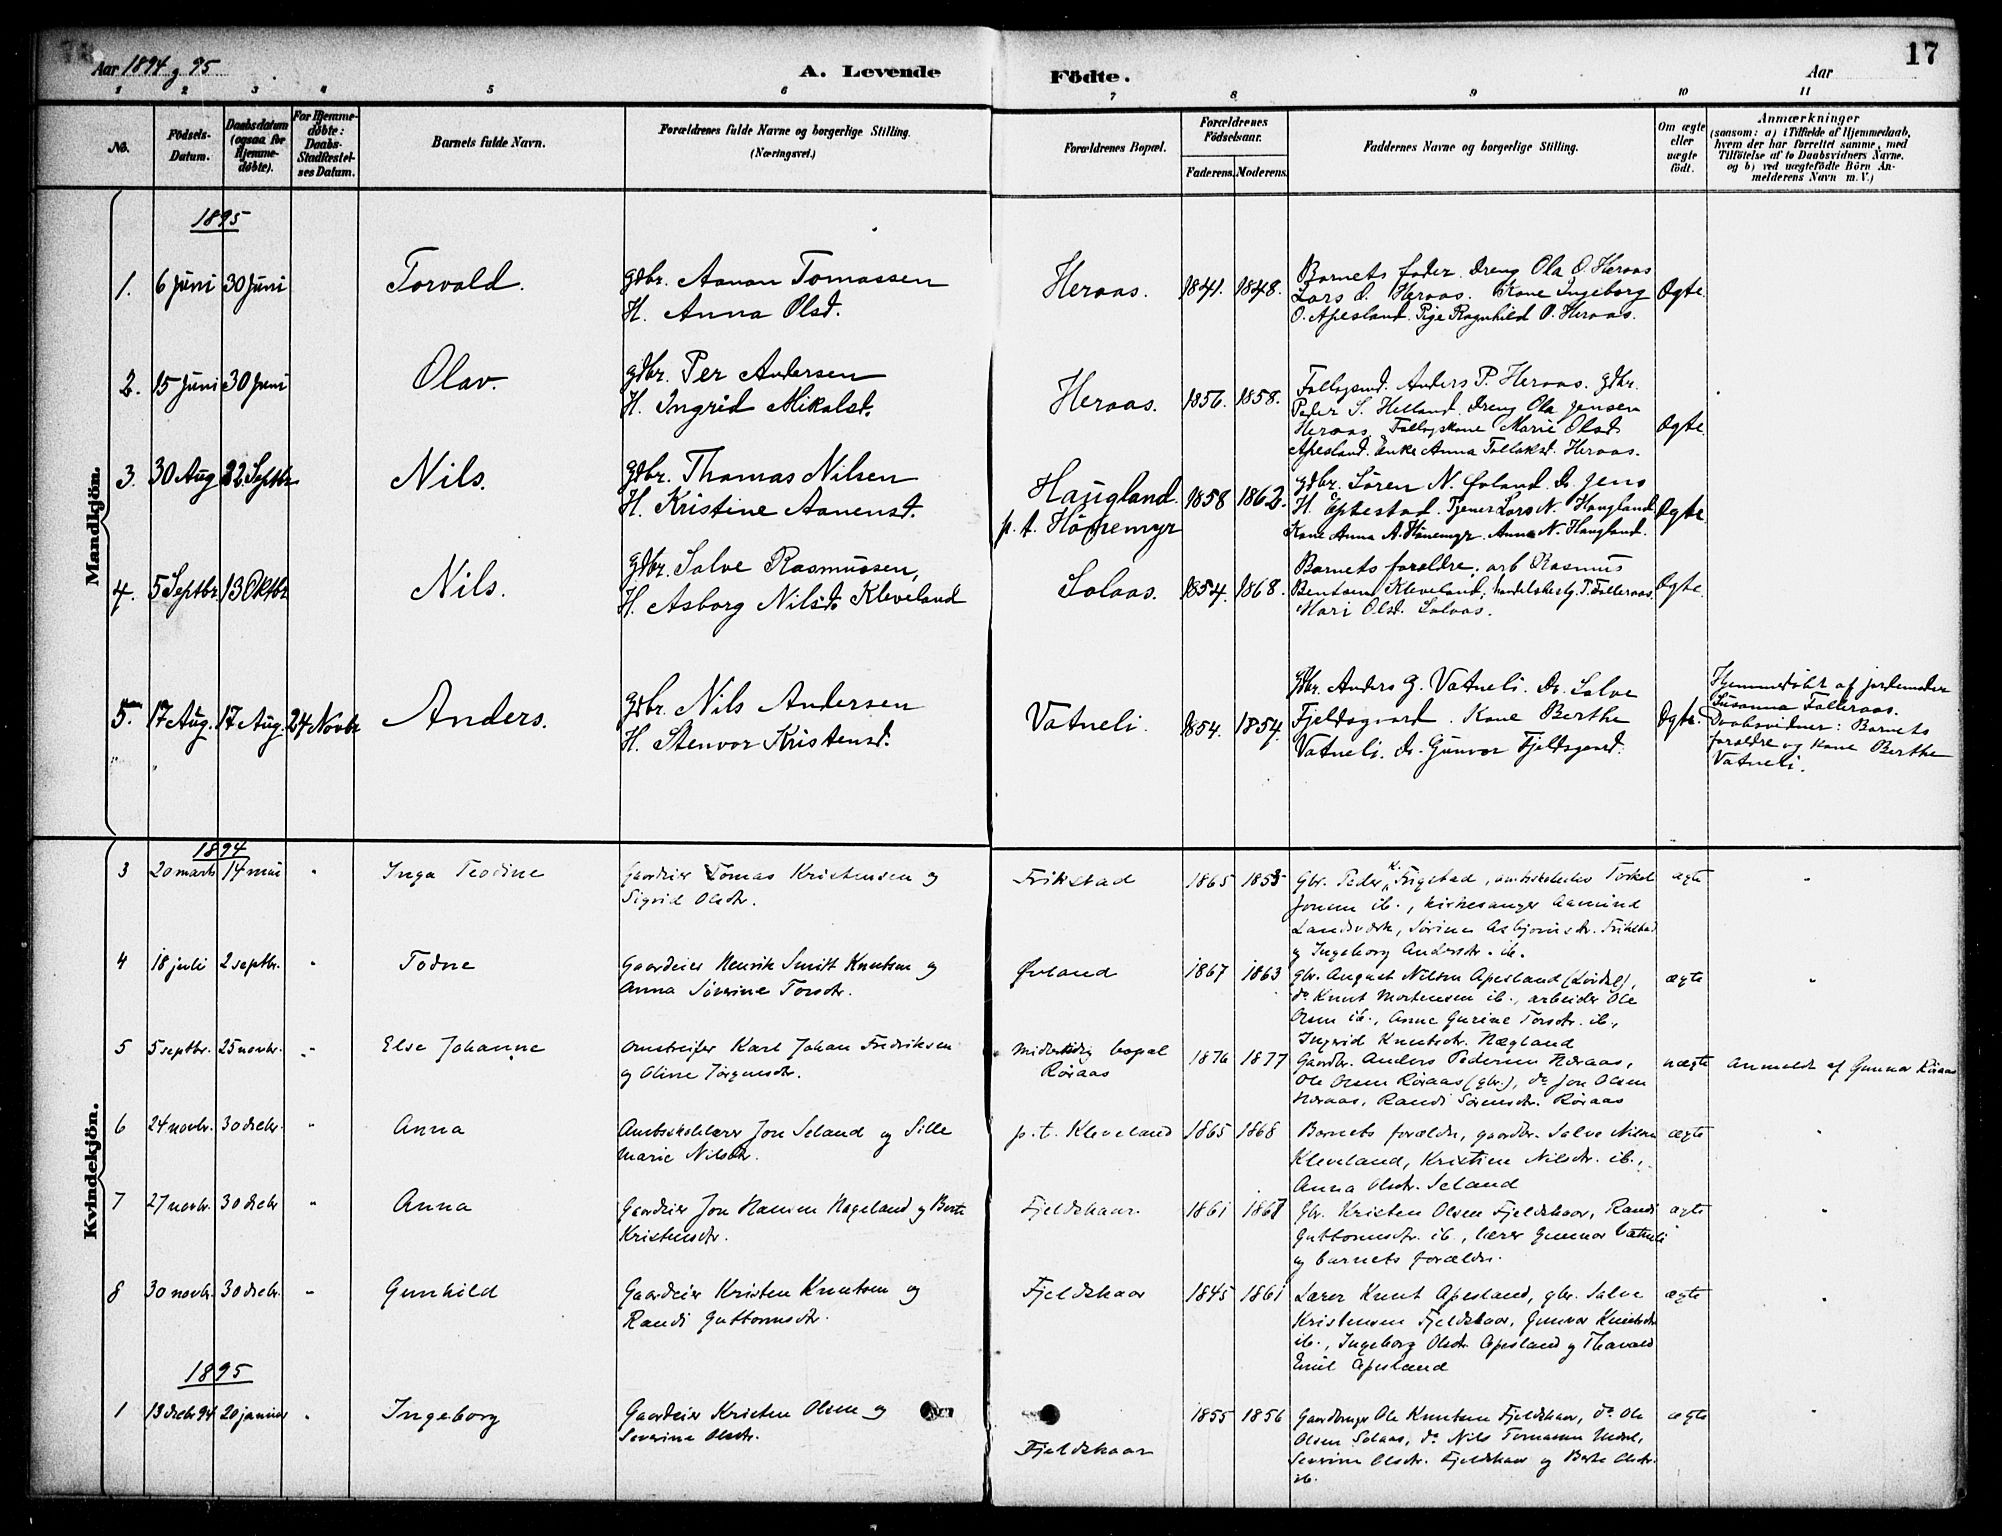 Aar 1894 g 95
A. Levende
Födte.
Aar
17
1 2 3 4 5 6 7 8 9 10 11
No.
Födsels-Datum.
Daabsdatum (ogsaa for Hjemme-døbte).
For Hjemme-døbte: Daabs-Stadfæstel-ses Datum.
Barnets fulde Navn.
Forældrenes fulde Navne og borgerlige Stilling.
(Næringsvei.)
Forældrenes Bopæl.
Forældrenes Födselsaar.
Faderens. Moderens.
Faddernes Navne og borgerlige Stilling.
Om ægte eller uægte født.
Anmærkninger
(saasom: a) i Tilfælde af Hjemmedaab,
hvem der har forrettet samme, med
Tilföielse af to Daabsvidners Navne.
og b) ved uægtefödte Börn An-
melderens Navn m.V.)
Mandkjön.
1895
1. 6 Juni 30 Juni Torvald. gdbr. Aanon Tomassen
H. Anna Olsd.
Heraas. 1841. 1848.
Barnets fader. Dreng Ola O. Heraas
Lars O. Heraas. Kone Ingeborg
O. Apesland. Pige Ragnhild O. Heraas.
Ægte
2. 15 Juni 30 Juni Olav. gdbr. Per Andersen
H. Ingrid Mikalsd.
Heraas. 1856. 1858.
Anders P. Heraas. gdbr.
Peder S. Helland. Dreng Ola Jensen
Heraas. Marie Olsd.
Apesland. Enke Anna Tollaksd. Heraas.
Ægte
3. 30 Aug 22 Septbr Nils. gdbr. Thomas Nilsen
H. Kristine Aanensd.
Haugland. 1858 1862.
p. t. Hönemyr
gdbr. Sören N. Øvland. Do Jens
H. Eptestad. Tjener Lars N. Haugland
Kone Anna A. Hönemyr Anna N. Haugland.
Ægte
4. 5 Septbr. 13 Oktbr Nils. gdbr. Salve Rasmussen,
H. Asborg Nilsd. Kleveland
Solaas. 1854. 1868.
Barnets foreldre. arb Rasmus
Bentsen Kleveland, T. Folleraas.
Mari Olsd. Solaas.
Ægte
5. 17 Aug. 17 Aug. 24 Novbr Anders. gdbr. Nils Andersen
H. Stenvor Kristensd.
Vatneli. 1854. 1854.
gdbr. Anders G. Vatneli. Do. Salve
Fjeldsgaard. Kone Berthe
Vatneli. Do. Gunvor Fjeldsgaard.
Ægte.
Hjemmedöbt af jordemoder
Susanna Folleraas.
Daabsvidner: Barnets
foreldre og Kone Berthe
Vatneli.
Kvindekjön.
1894
3 20 marts 14 mai " Inga Teodine Gaardeier Tomas Kristensen og
Sigrid Olsdtr.
Frikstad 1865 1855
Gbr. Peder K. Frigstad, Torkel
Jonsen ib., kirkesanger Aamund
Landsverk, Sørine Asbjørnsdtr. Frikstad
og Ingeborg Andersdtr. ib.
ægte "
4 18 juli 2 septbr. " Todne Gaardeier Henrik Smitt Knutsen og
Anna Severine Torsdtr.
Øvland 1867 1863
Gbr. August Nilsen Apesland,
do Knut Mortensen ib., arbeider Ole
Olsen ib., Anne Gurine Torsdtr. ib.,
Ingrid Knutsdtr. Hægland
ægte "
5 5 septbr. 25 novbr. " Else Johanne Omstreifer Karl Johan Fredriksen
og Oline Jørgensdtr.
Midlertidig bopæl
Røraas
1876 1877
Gaardbr. Anders Pedersen Heraas,
Ole Olsen Røraas (gbr.), do Jon Olsen
Heraas, Randi Sørensdtr. Røraas
uægte Anmeldt af Gunnar Röraas
6 24 novbr. 30 decbr. " Anna Amtsskolelærer Jon Seland og Sille
Marie Nilsdtr.
p. t. Kleveland 1865 1868
Barnets forældre, gaardbr. Salve Nilsen
Kleveland, Kristine Nilsdtr. ib.,
Anna Olsdtr. Seland
ægte "
7 27 novbr. 30 decbr " Anna Gaardeier Jon Hansen Hageland og Berte
Kristensdtr.
Fjeldskaar 1861 1867
Gbr. Kristen Olsen Fjeldskaar, Randi
Guttormsdtr. ib., lærer Gunnar Vatneli
og barnets forældre.
ægte "
8 30 novbr. 30 decbr. " Gunhild Gaardeier Kristen Knutsen og
Randi Guttormsdtr.
Fjeldskaar 1845 1861
Lærer Knut Apesland, gbr. Salve
Kristensen Fjeldskaar, Gunvor Knutsdtr
ib., Ingeborg Olsdtr. Apesland og Thorvald
Emil Apesland
ægte "
1895
1 13 decbr 94 20 januar " Ingeborg Gaardeier Kristen Olsen og
Severine Olsdtr.
Fjeldskaar
1855 1856
Gaardbruger Ole Knutsen Fjeldskaar, do Ole
Olsen Solaas, do Nils Tomassen
Severine Olsdtr. Fjeldskaar og Berte Olsdtr.
ib.
ægte "